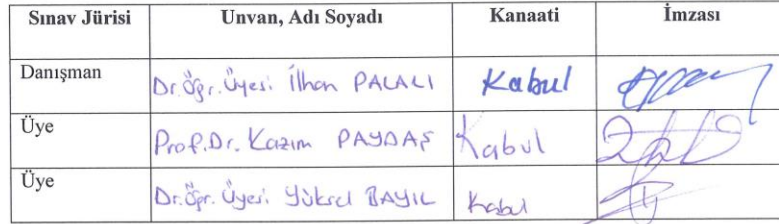 Sınav Jürisi Unvan, Adı Soyadı Kanaati İmzası
Danışman Dr. Öğr. Üyesi İlhan PALALI Kabul
Üye Prof. Dr. Kazım PAYDAŞ Kabul
Üye Dr. Öğr. Üyesi Yüksel BAYIL Kabul